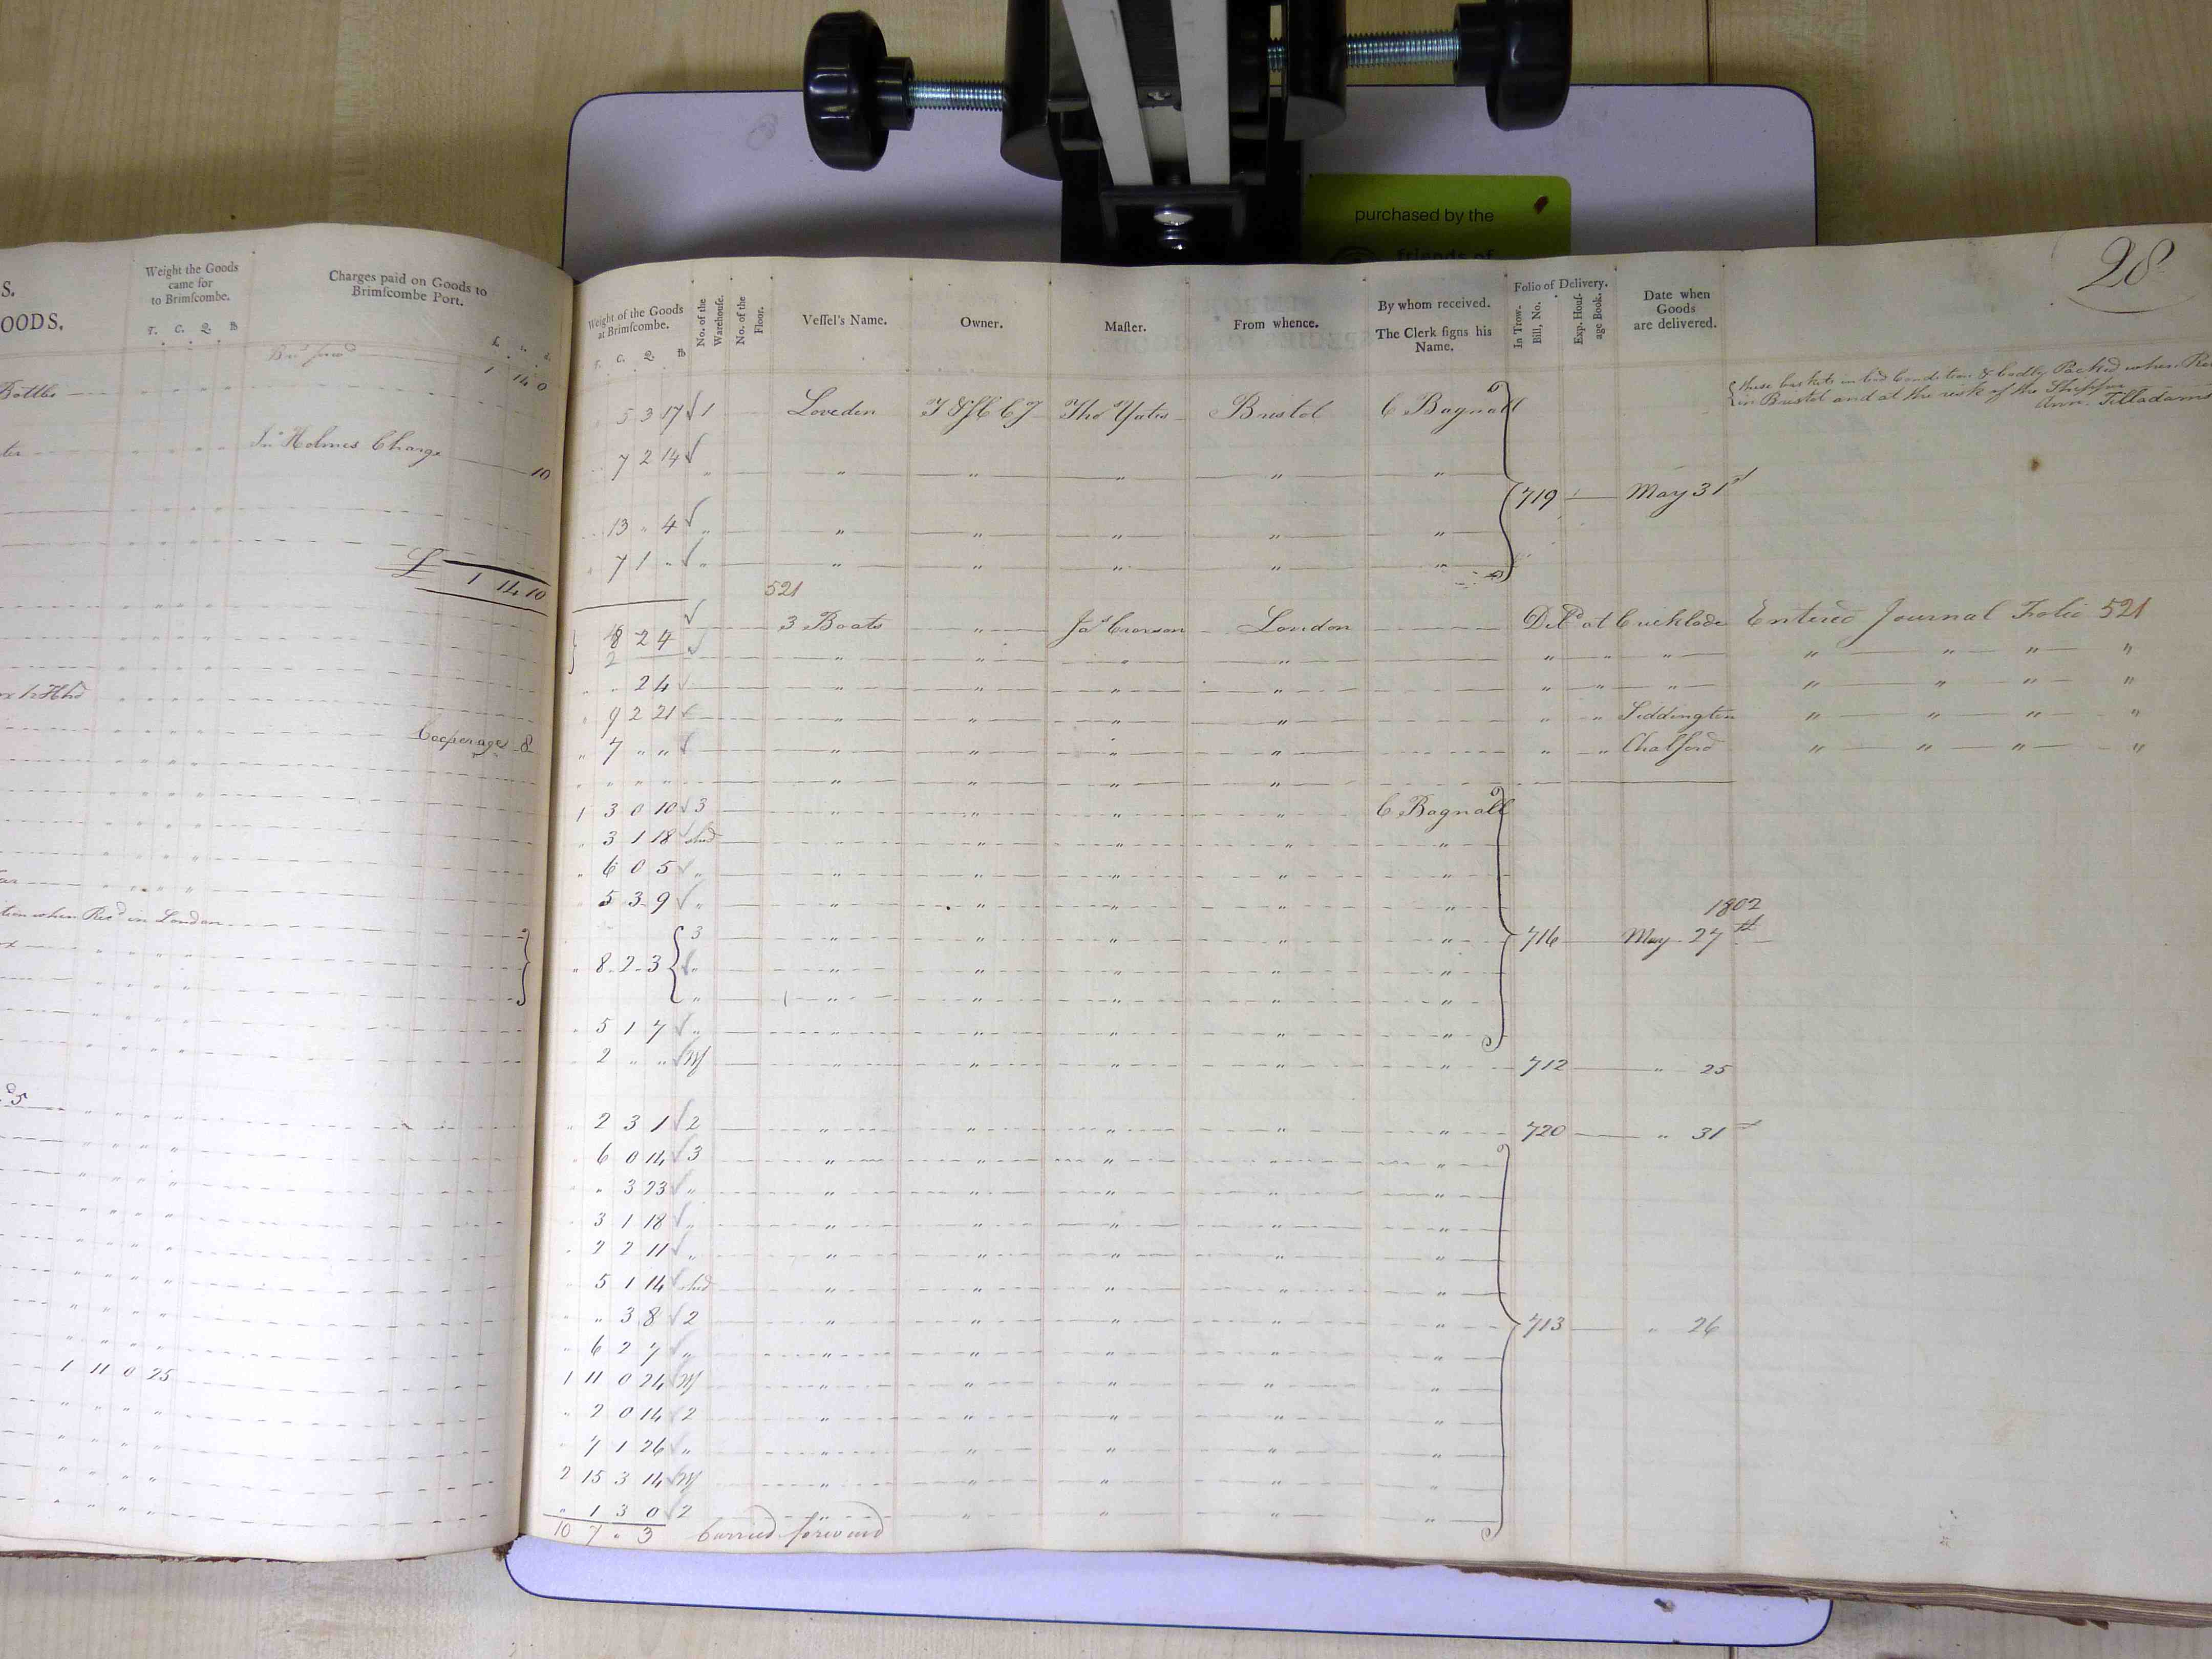 purchased by the
friends of
28
S.
OODS.
Weight the Goods
came for
to Brimſcombe.
T. C. Q. lb
Charges paid on Goods to
Brimſcombe Port.
Bro.t forw.d
1 14 0
Bottles
Jn.o Holmes Charge 10
£ 1 14 10
Cooperage 8
tion when Rec.d in London
1 11 0 25
Weight of the Goods
at Brimſcombe.
T. C. Q. lb
No. of the
Warehouſe.
No. of the
Floor.
Veſſel's Name.
Owner.
Maſter.
From whence.
By whom received.
The Clerk ſigns his
Name.
Folio of Delivery.
In Trow.
Bill, No.
Exp. Houſ-
age Book.
Date when
Goods
are delivered.
these baskets in bad Condition & badly Packed when Re
in Bristol and at the risk of the Shipper
Ann. Tilladams
5 3 17 √ 1 Loveden Tho.s Yates Bristol C Bagnall
7 2 14 √ " " " " " "
719 May 31st
13 " 4 √ " " " " " "
7 1 " √ " " " " " "
521
8 2 4 √ 3 Boats " London Del.d at Cricklade Entered Journal Folio 521
2 √ " " " " " " " " " " "
" " 2 4 √ " " " " " " " " " " "
" 9 2 21 √ " " " " " " Siddington " " " "
" 7 " " √ " " " " " " Chalford " " " "
" " " " " " " "
1 3 0 10 √ 3 " " " " C Bagnall
" 3 1 18 √ shed " " " " "
" 6 0 5 √ " " " " " "
5 3 9 √ " " " " " "
1802
3 " " " " " 716 May 27th
" 8 2 3 √ " " " " " "
" " " " " "
" 5 1 7 √ " " " " " "
" 2 " " √ Wf " " " " " 712 " 25
" 2 3 1 √ 2 " " " " " 720 " 31st
" 6 0 14 √ 3 " " " " "
" " 3 23 √ " " " " " "
" 3 1 18 √ " " " " " "
" 2 2 11 √ " " " " " "
" 5 1 14 √ shed " " " " "
" " 3 8 √ 2 " " " " " 713 " 26
" 6 2 7 √ " " " " " "
1 11 0 24 √ Wf " " " " "
" 2 0 14 √ 2 " " " " "
" 7 1 26 √ " " " " " "
2 15 3 14 √ Wf " " " " "
" 1 3 0 √ 2 " " " " "
10 7 " 3 Carried forward